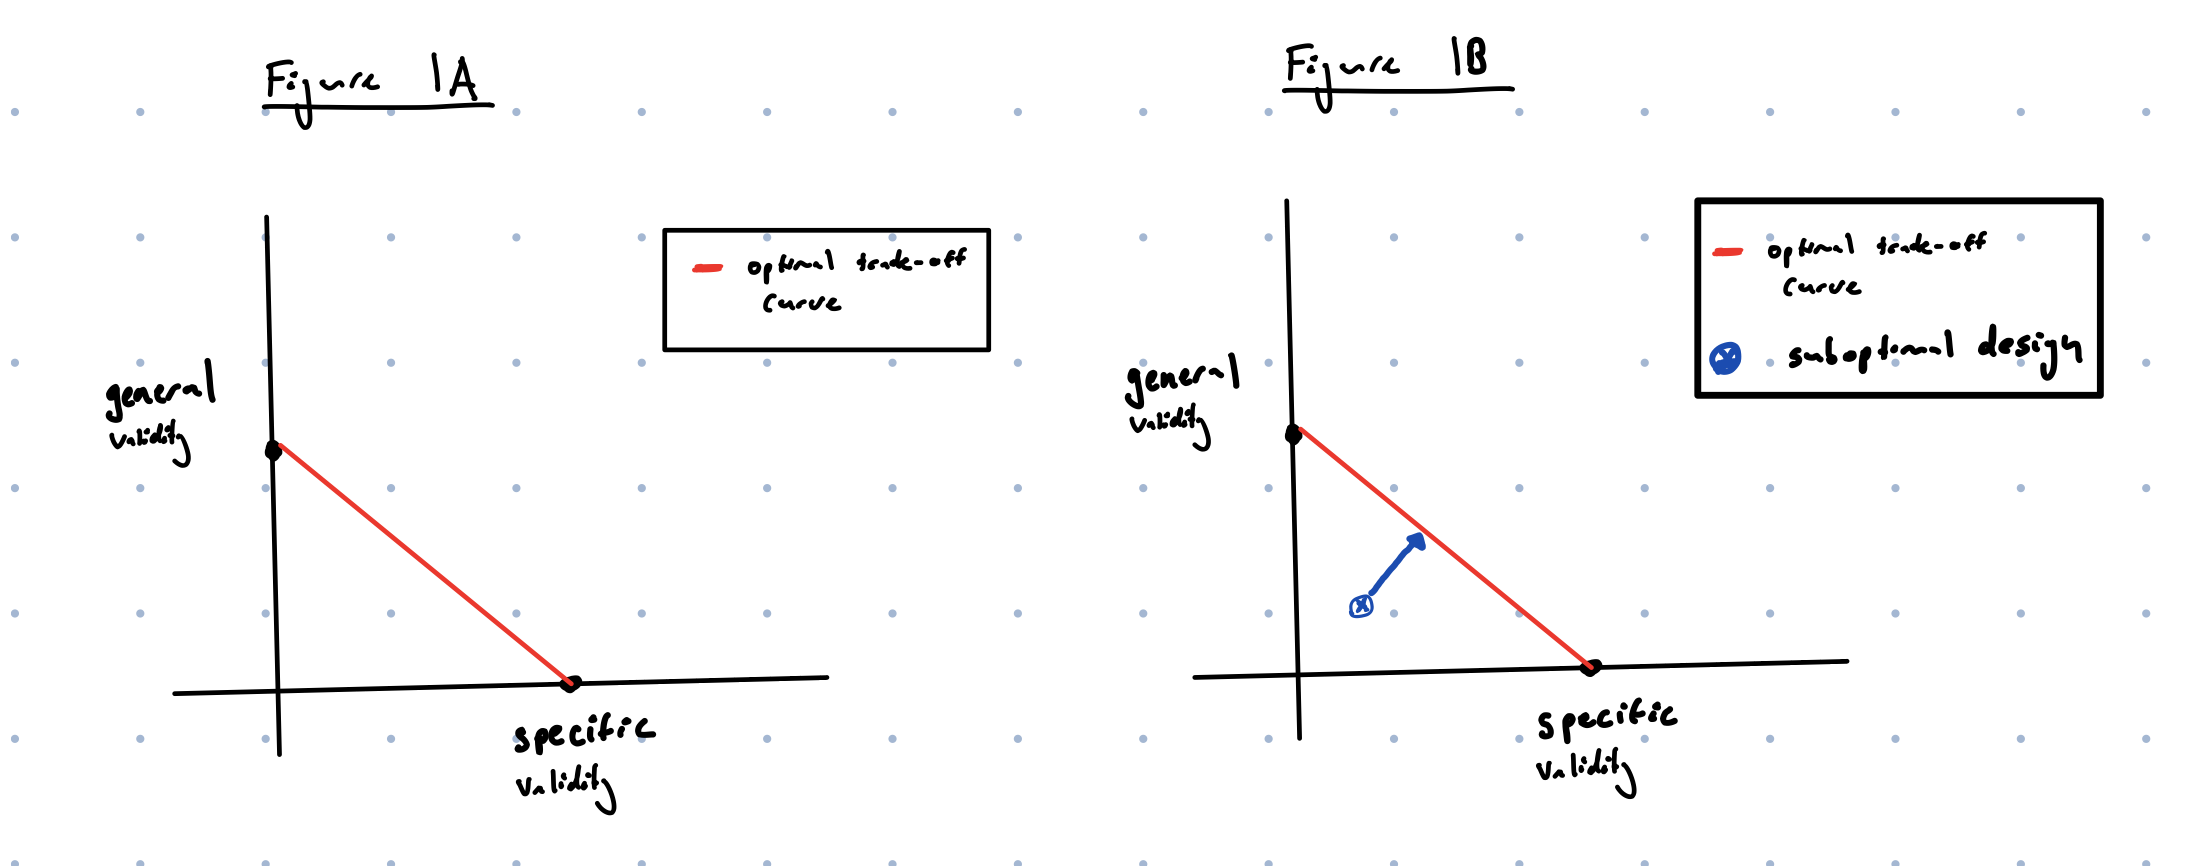 Figure 1A
optimal trade-off
curve
general
validity
specific
validity
Figure 1B
optimal trade-off
curve
suboptimal design
general
validity
specific
validity